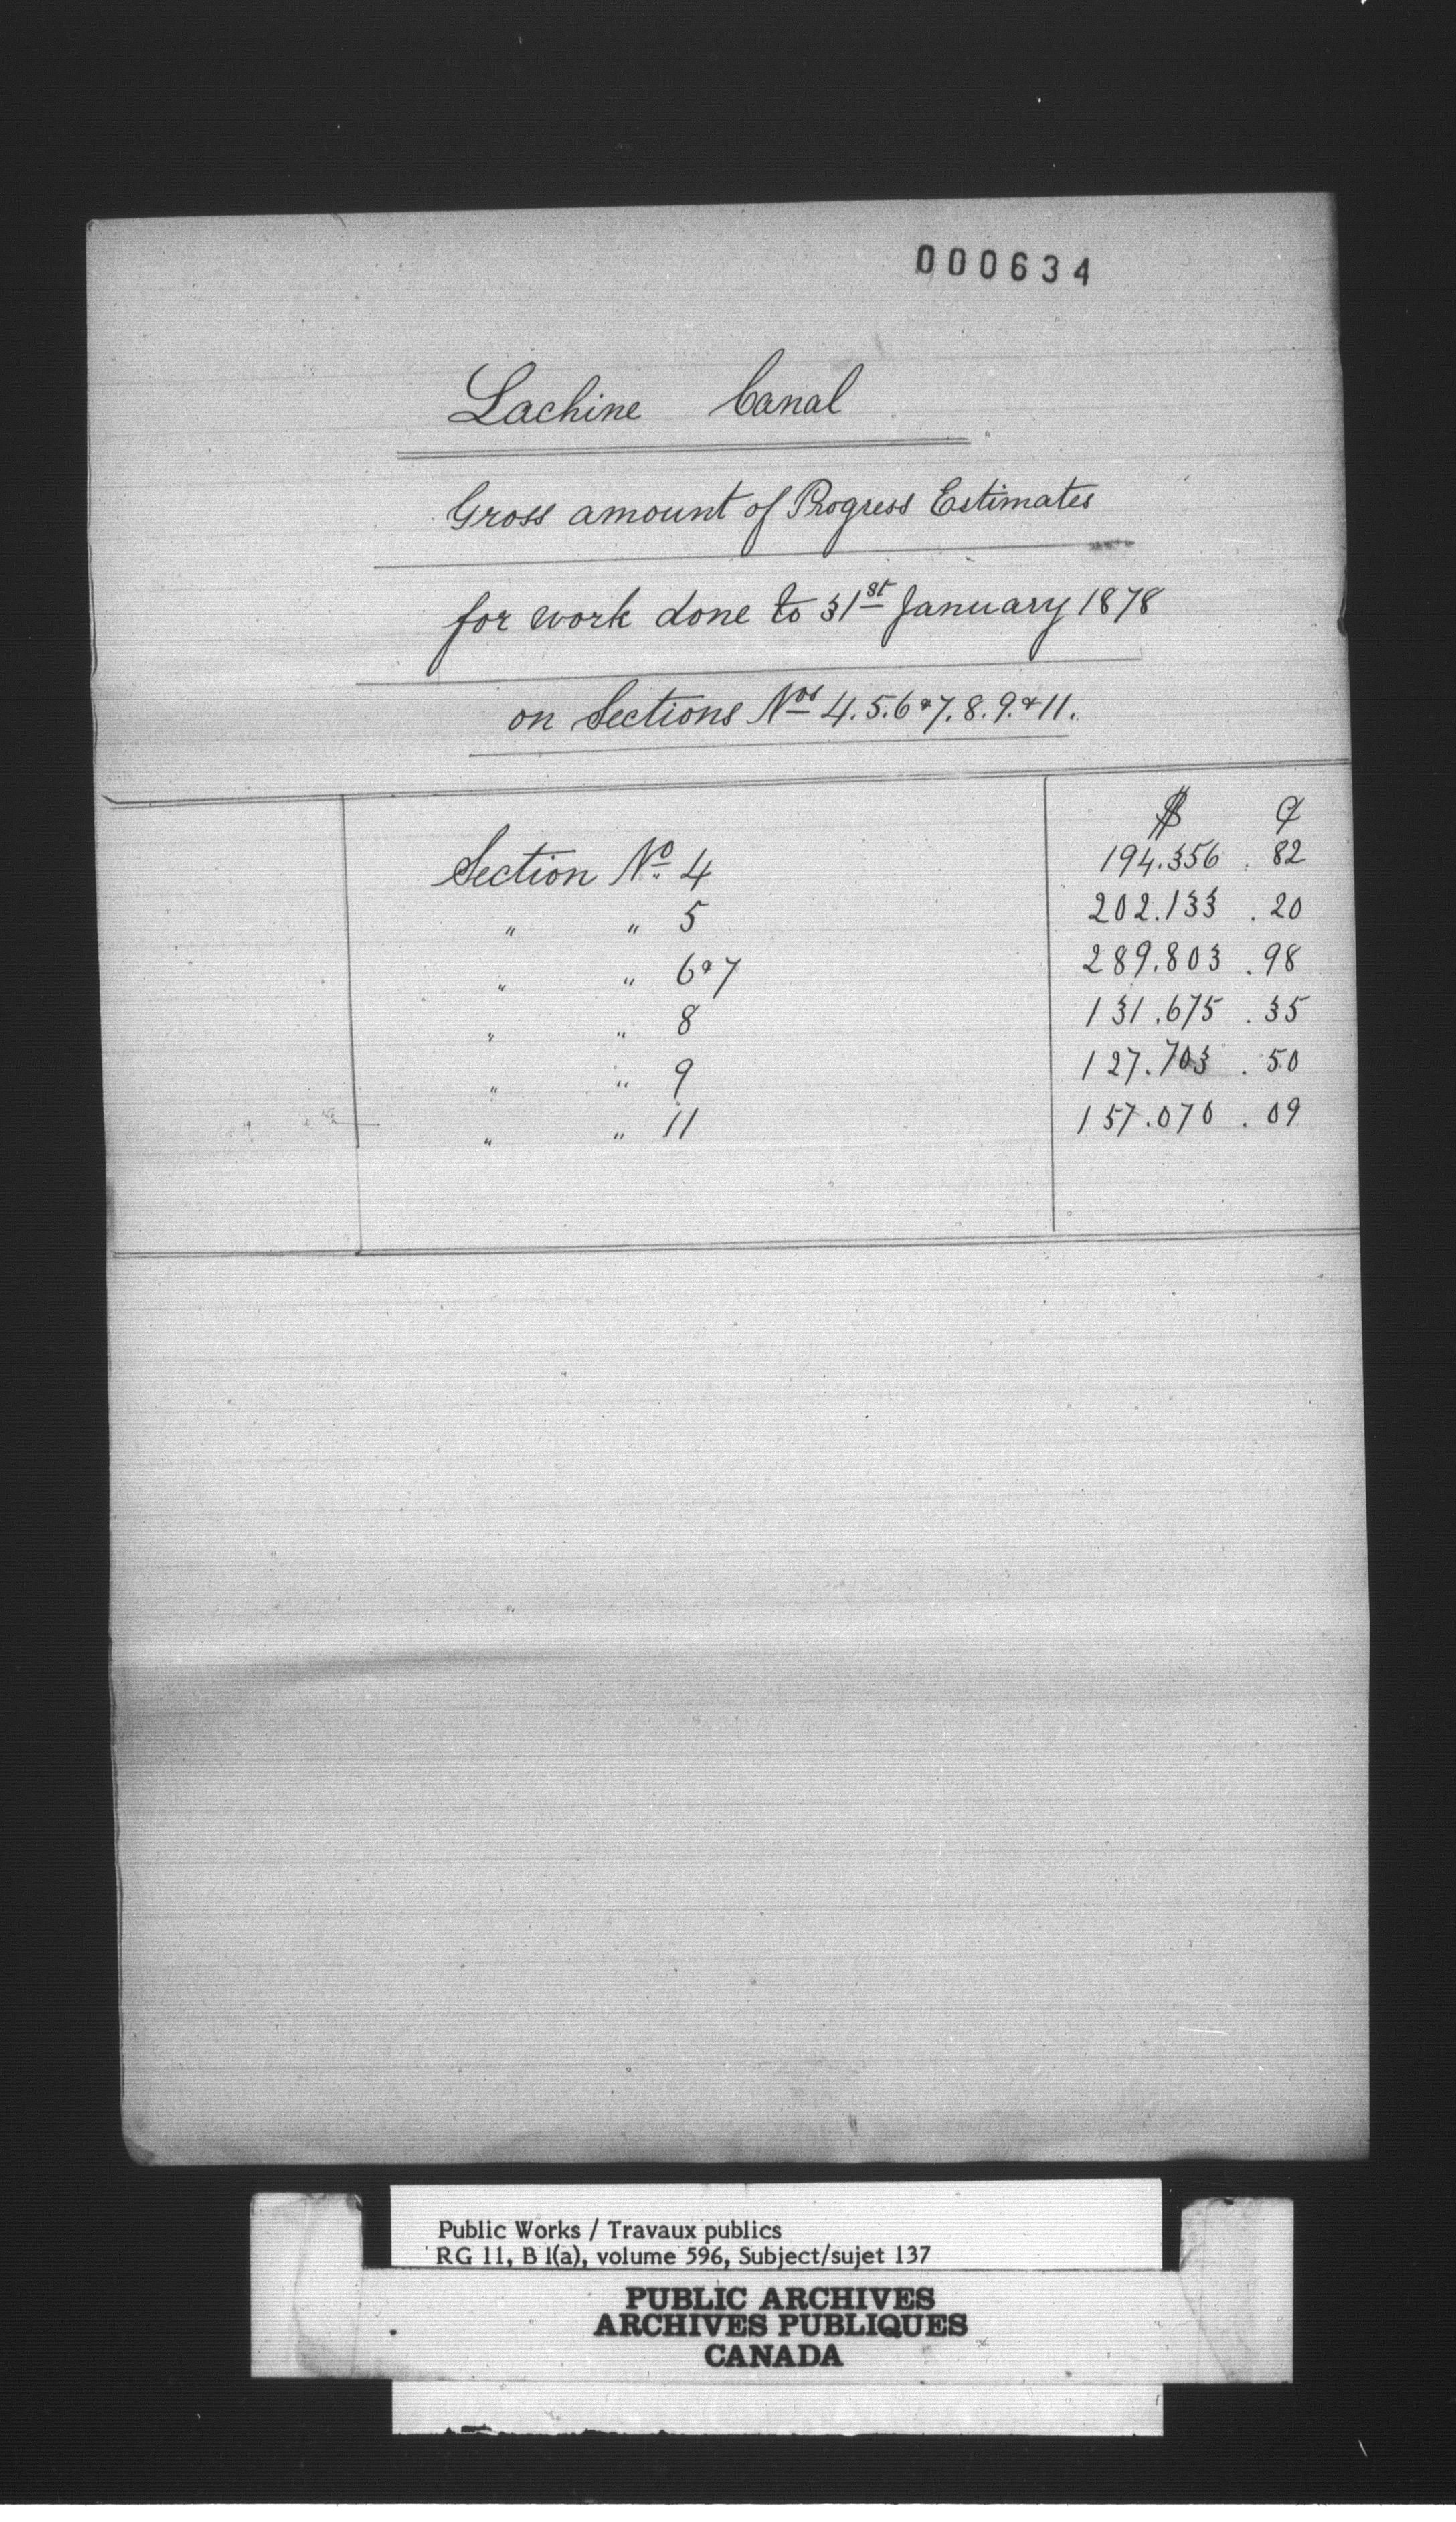 000634
Lachine Canal
Gross amount of Progress Estimates
for work done to 31st January 1878
on Sections Nos 4. 5. 6 & 7. 8. 9. & 11.
$ ¢
Section No. 4 194.356 . 82
" " 5 202.133 . 20
" " 6 & 7 289.803 . 98
" " 8 131.675 . 35
" " 9 127.703 . 50
" " 11 157.070 . 09
Public Works / Travaux publics
RG 11, B 1(a), volume 596, Subject/sujet 137
PUBLIC ARCHIVES
ARCHIVES PUBLIQUES
CANADA